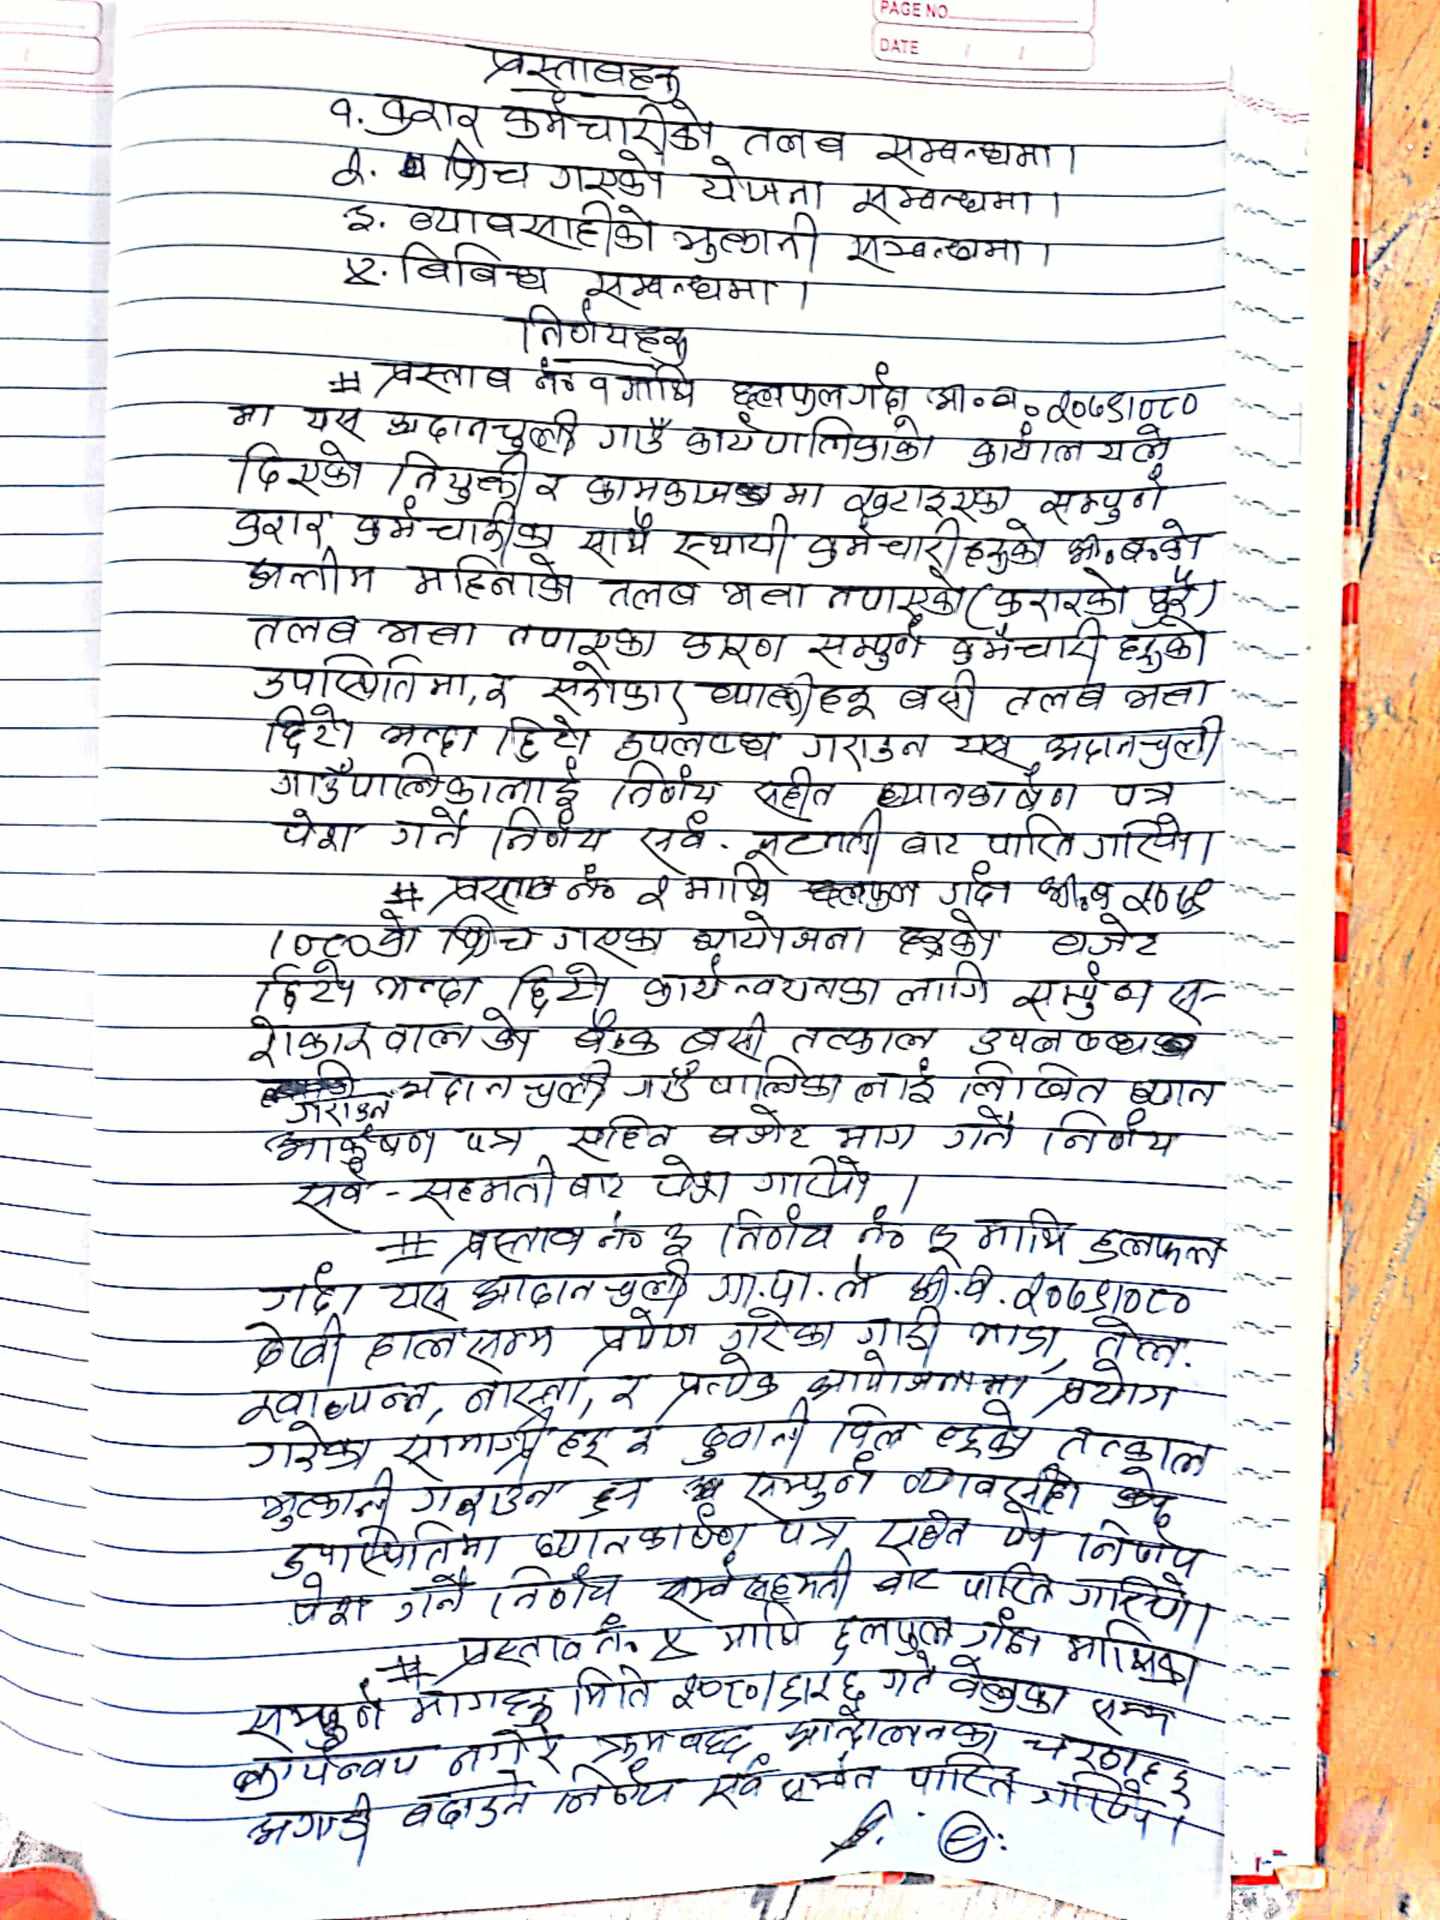 PAGE NO.
DATE / /
प्रस्ताबहरु
१. करार कर्मचारीको तलब सम्बन्धमा।
२. फ्रिच गएको योजना सम्बन्धमा।
३. ब्यावसाहीको भुत्कानी सम्बन्धमा।
४. बिबिध सम्बन्धमा।
निर्णयहरु
# प्रस्ताब नं० १ माथि छलफुल गर्दा आ०व० २०७९।०८०
मा यस अदानचुली गाउँ कार्यपालिकाको कार्यालयले
दिएको नियुक्ती र कामकाजमा खटाइएका सम्पुर्ण
करार कर्मचारीका साथै स्थायी कर्मचारीहरुको आ.ब.को
अन्तीम महिनाको तलब भत्ता नपाएको (करारको पुरै)
तलब भत्ता नपाएका कारण सम्पुर्ण कर्मचारी हरुको
उपस्थितिमा, र सरोकार ब्यात्तीहरु बसी तलब भत्ता
छिटो भन्दा छिटो उपलब्ध गराउन यस अदानचुली
गाउँपालिकालाई निर्णय सहीत ध्यानकार्षण पत्र
पेश गर्ने निर्णय सर्व. सहमती बाट पारित गरियो।
# प्रस्ताब नं० २ माथि छलफुल गर्दा आ.ब २०७९
।०८०को फ्रिच गएका आयोजना हरुको बजेट
छिटो भन्दा छिटो कार्यन्वयनका लागि सम्पुर्ण स-
रोकारवालाको बैठक बसी तत्काल उपलब्ध
गराउन अदानचुली गाउँपालिका लाई लिखित ध्यान
आर्कषण पत्र सहित बजेट माग गर्ने निर्णय
सर्व-सहमती बाट पेश गरियो।
# प्रस्ताव नं० ३ निर्णय नं० ३ माथि छलफल
गर्दा यस आदानचुली गा.पा.ले आ.व. २०७९।०८०
देखी हालसम्म प्रयोग गरेका गाडी भाडा, तेल.
खाद्यन्न, नास्ता, र प्रत्येक आयोजनामा प्रयोग
गरेका सामाग्री हरु र ढुवानी विल हरुको तत्काल
भुत्कानी गराउन सम्पुर्ण व्यावसाही
उपस्थितिमा ध्यानकार्षण पत्र सहित निर्णय
पेश गर्ने निर्णय सर्व सहमती बाट पारित गरियो।
# प्रस्ताव नं. ४ माथि छलफुल गर्दा माथिका
सम्पुर्ण मागहरु मिति २०८०।३।२६ गते बेलुका सम्म
कार्यन्वय नगरे क्रमबद्ध आन्दोलनका चरणहरु
अगाडी बढाउने निर्णय सर्व सम्मत पारित गरियो।